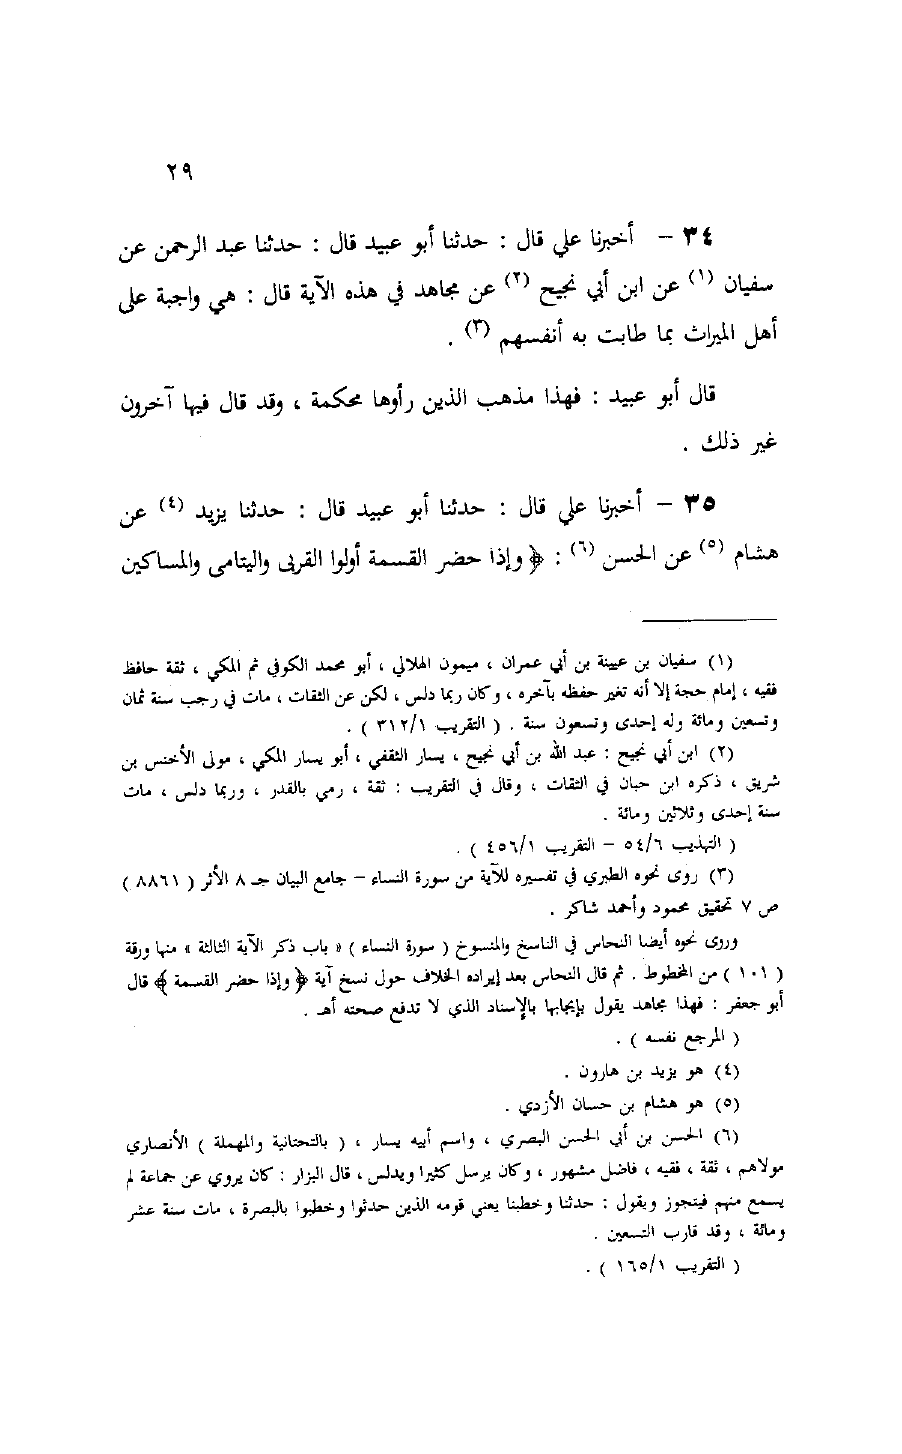 ٢٩
٣٤ - أخبرنا علي قال : حدثنا أبو عبيد قال : حدثنا عبد الرحمن عن
سفيان (١) عن ابن أبي نجيح (٢) عن مجاهد في هذه الآية قال : هي واجبة على
أهل الميراث بما طابت به أنفسهم (٣) .
قال أبو عبيد : فهذا مذهب الذين رأوها محكمة ، وقد قال فيها آخرون
غير ذلك .
٣٥ - أخبرنا علي قال : حدثنا أبو عبيد قال : حدثنا يزيد (٤) عن
هشام (٥) عن الحسن (٦) : ﴿ وإذا حضر القسمة أولوا القربى واليتامى والمساكين
(١) سفيان بن عيينة بن أبي عمران ، ميمون الهلالي ، أبو محمد الكوفي ثم المكي ، ثقة حافظ
فقيه ، إمام حجة إلا أنه تغير حفظه بآخره ، وكان ربما دلس ، لكن عن الثقات ، مات في رجب سنة ثمان
وتسعين ومائة وله إحدى وتسعون سنة . ( التقريب ٣١٢/١ ) .
(٢) ابن أبي نجيح : عبد الله بن أبي نجيح ، يسار الثقفي ، أبو يسار المكي ، مولى الأخنس بن
شريق ، ذكره ابن حبان في الثقات ، وقال في التقريب : ثقة ، رمي بالقدر ، وربما دلس ، مات
سنة إحدى وثلاثين ومائة .
( التهذيب ٥٤/٦ - التقريب ٤٥٦/١ ) .
(٣) روى نحوه الطبري في تفسيره للآية من سورة النساء - جامع البيان جـ ٨ الأثر ( ٨٨٦١ )
ص ٧ تحقيق محمود وأحمد شاكر .
وروى نحوه أيضا النحاس في الناسخ والمنسوخ ( سورة النساء ) « باب ذكر الآية الثالثة » منها ورقة
( ١٠١ ) من المخطوط . ثم قال النحاس بعد إيراده الخلاف حول نسخ آية ﴿ وإذا حضر القسمة ﴾ قال
أبو جعفر : فهذا مجاهد يقول بإيجابها بالإسناد الذي لا تدفع صحته أهـ .
( المرجع نفسه ) .
(٤) هو يزيد بن هارون .
(٥) هو هشام بن حسان الأزدي .
(٦) الحسن بن أبي الحسن البصري ، واسم أبيه يسار ، ( بالتحتانية والمهملة ) الأنصاري
مولاهم ، ثقة ، فقيه ، فاضل مشهور ، وكان يرسل كثيرا ويدلس ، قال البزار : كان يروي عن جماعة لم
يسمع منهم فيتجوز ويقول : حدثنا وخطبنا يعني قومه الذين حدثوا وخطبوا بالبصرة ، مات سنة عشر
ومائة ، وقد قارب التسعين .
( التقريب ١٦٥/١ ) .